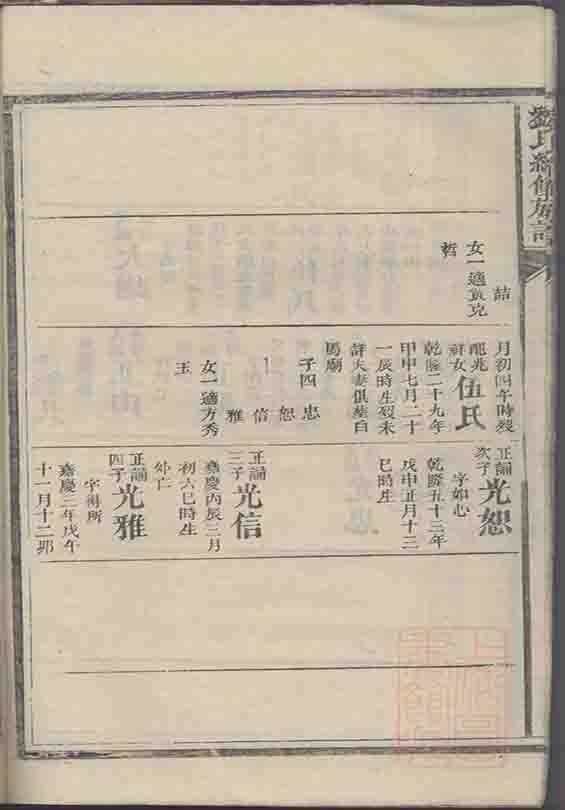 氏續修族譜
喆
女一適黃克
哲
月初四午時歿
配兆
祥女伍氏
乾隆二十九年
甲申七月二十
一辰時生歿未
詳夫妻俱葬自
馬廟
子四 忠
恕
信
雅
女一適方秀
玉
正誦
次子光恕
字如心
乾隆五十三年
戊申正月十三
巳時生
正誦
三子光信
嘉慶丙辰三月
初六巳時生
外亡
正誦
四子光雅
字得所
嘉慶三年戊午
十一月十二卯